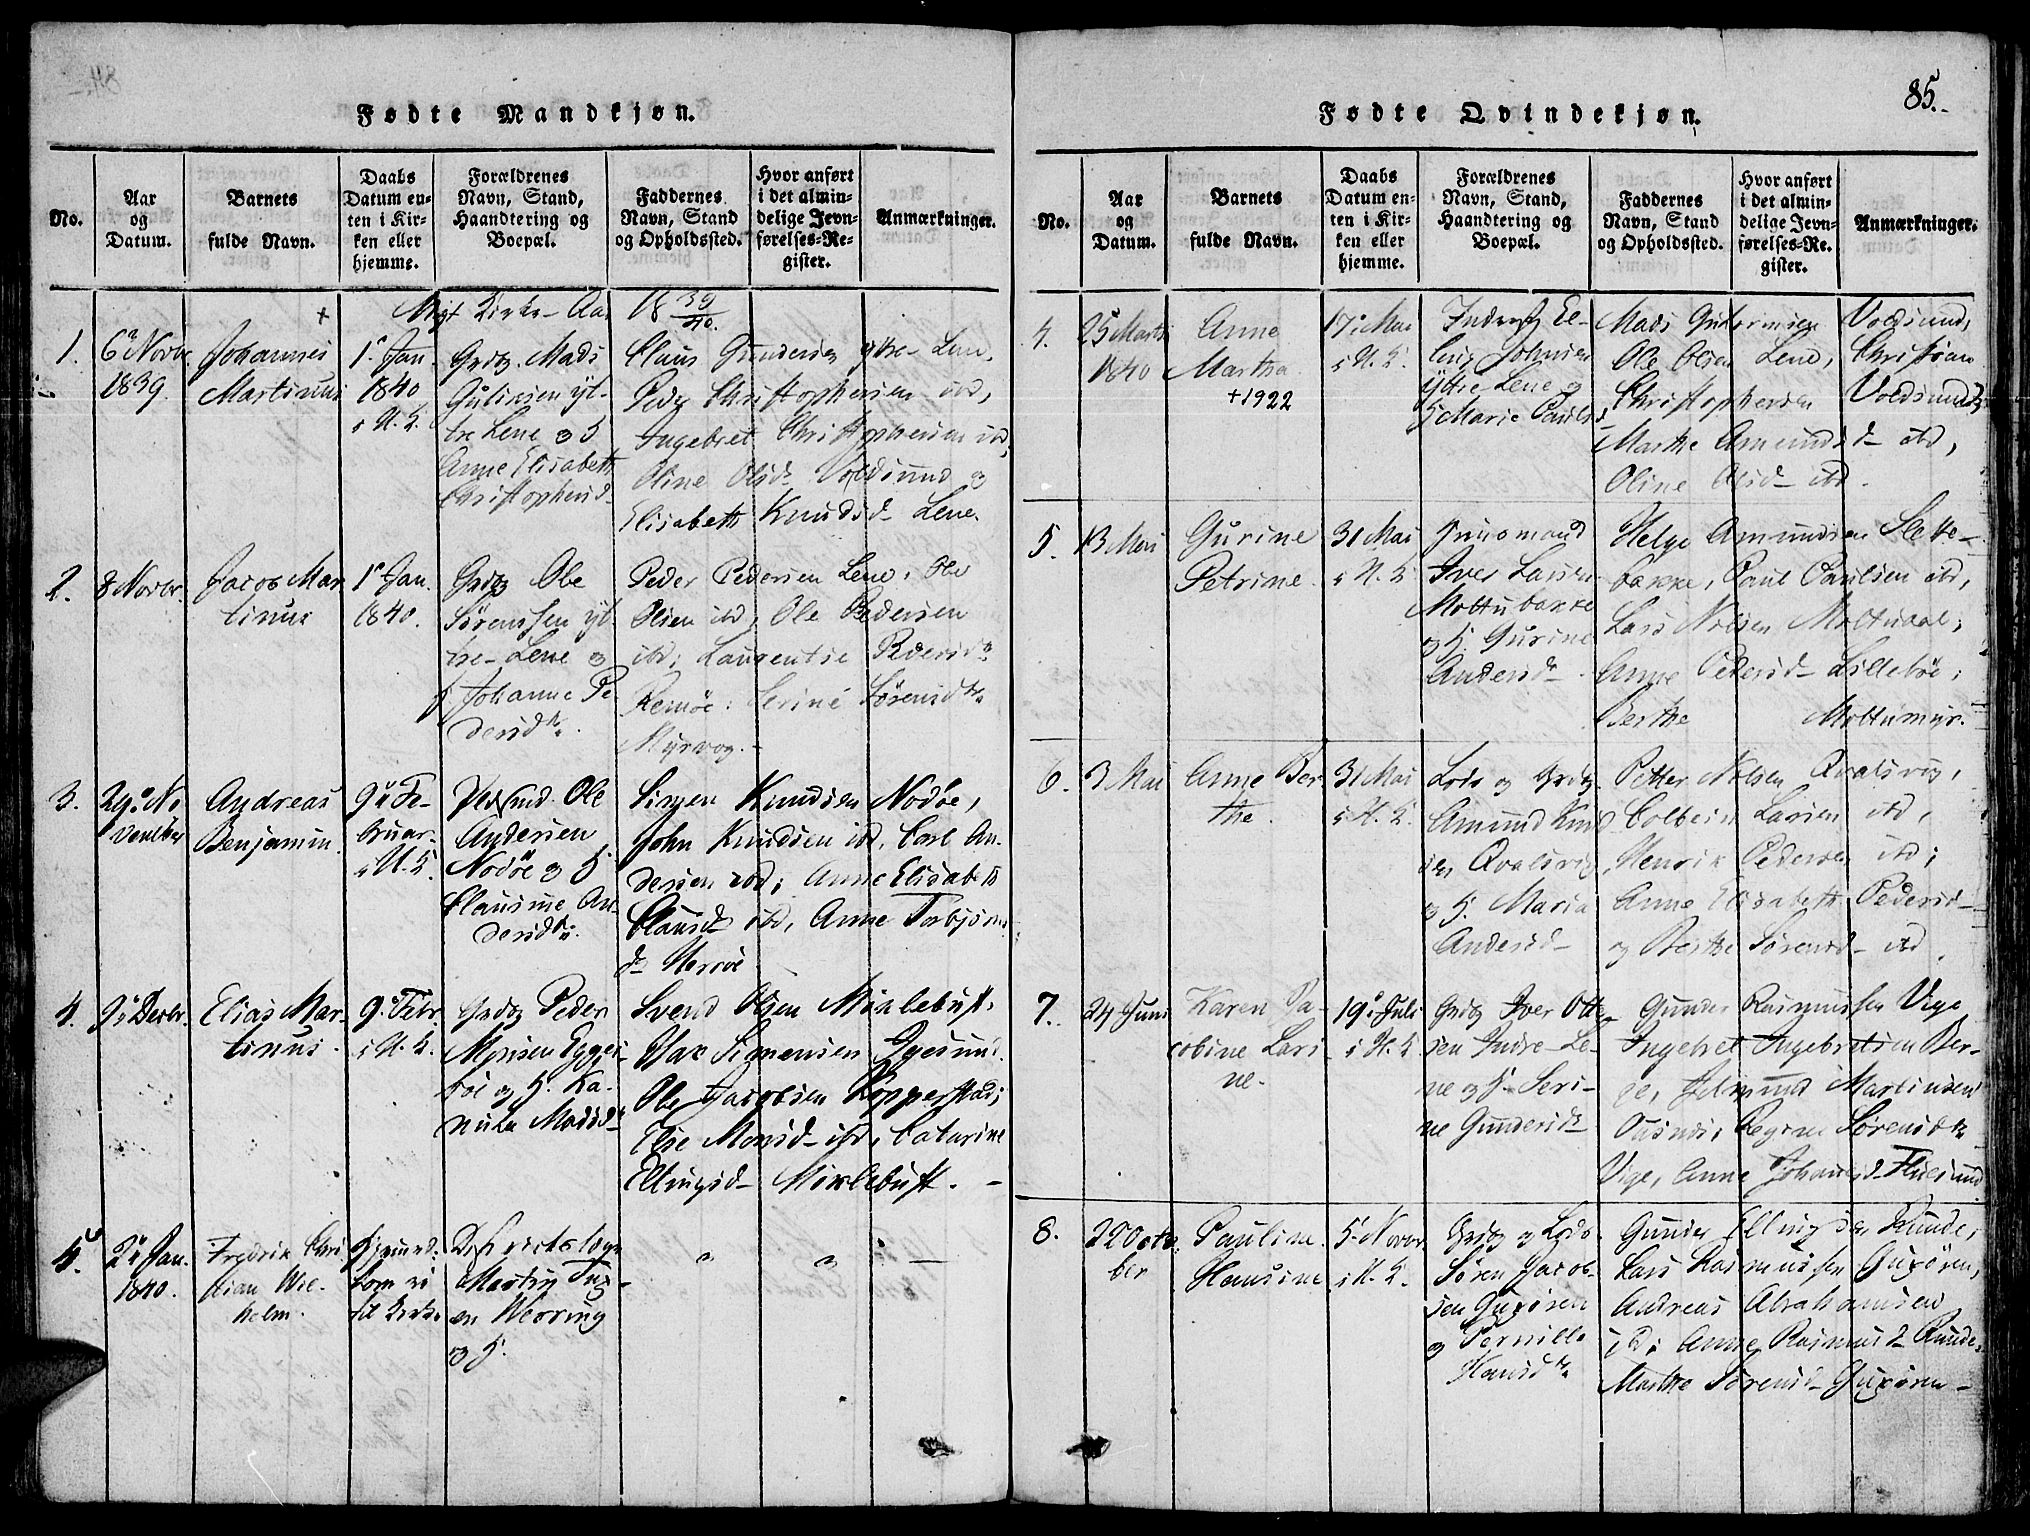 85.
Fødte Mandkjøn.
No.
Aar
og
Datum.
Barnets
fulde Navn.
Daabs
Datum en-
ten i Kir-
ken eller
hjemme.
Forældrenes
Navn, Stand,
Haandtering og
Boepæl.
Faddernes
Navn, Stand
og Opholdssted.
Hvor anført
i det almin-
delige Jevn-
førelses-Re-
gister.
Anmærkninger.
Kirke-Aar 18 39/40.
1.
6 Novbr
1839.
Johannes
Martinus
1. Jan.
1840
i H. K.
Grdbr. Mads
Guliksen yt-
tre Lene og H
Anne Elisabeth
Christophersd
Claus Gundersen ytre Lene,
Peder Christophersen ibd,
Ingebret Christophersen ibd,
Oline Olsd Voldsund og
Elisabeth Knudsd Lene.
2.
8 Novbr.
Jacob Mar
tinus
1. Jan.
1840.
Grdbr Ole
Sørenssen yt
tre Lene og
Johanne Pe
dersdtr.
Peder Pedersen Lene, Ole
Olsen ibd, Ole Pedersen
ibd; Laurentse Pedersdr
Remøe; Serine Sørensdtr
Myrvog.
3.
29 No
vember
Andreas
Benjamin.
9 Fe-
bruar
i H. K.
Ole
Andersen
Nodøe og H
Clausine An-
dersdtr.
Simen Knudsen Nodøe,
John Knudsen ibd, Carl An-
dersen ibd; Anne Elisabeth
Clausd ibd, Anne Torbjørns
d Herrøe
4.
9 Decbr.
Elias Mar-
tinus.
9. Febr.
i H. K.
Grdbr Peder
Monsen Egges-
bøe og H. Ka-
nuta Madsd
Svend Olsen Mixlebust,
Simensen Igesund.
Ole Jacobsen Kopperstad;
Else Monsd ibd, Catarine
Ellingsd Mixlebust.
5.
2 Jan.
1840.
Fredrik Chri
stian Wil-
helm.
Hjemmed.
kom ei
til Kirke
Districtslæge
Martin
en Werring
og H.
Fødte Qvindekjøn.
No.
Aar
og
Datum.
Barnets
fulde Navn.
Daabs
Datum en-
ten i Kir-
ken eller
hjemme.
Forældrenes
Navn, Stand,
Haandtering og
Boepæl.
Faddernes
Navn, Stand
og Opholdssted.
Hvor anført
i det almin-
delige Jevn-
førelses-Re-
gister.
Anmærkninger.
4.
25 Marts
1840
Anne
Martha
+1922
17 Mai
i H. K.
El-
ling Johnsen
yttre Lene og
H Marie Paulsd
Mads Guttormsen Voldsund,
Ole Olsen Lene, Christian
Christophersen Voldsund,
Marthe Amundsd ibd,
Oline Olsd ibd.
5.
13 Mai
Gurine
Petrine
31 Mai
i H. K
Huusmand
Iver Larsen
Moltubakke
og H. Gurine
Andersd
Helge Amundsen Slette-
bakke, Paul Paulsen ibd,
Lars Nilsen Moltudal;
Anne Pedersd Lillebøe;
Berthe Moltumyr.
6.
3 Mai
Anne Ber
the.
31 Mai
i H. K.
Lods og Grdbr.
Amund Knud
sen Qvalsvig
og H. Maria
Andersd
Petter Nilsen Qvalsvig,
Colbein Larsen ibd,
Henrik Pedersen ibd;
Anne Elisabeth Pedersd
og Berthe Sørensd ibd.
7.
24 Juni
Karen Ja-
cobine Lari
ne.
19 Juli
i H. K
Grdbr Iver Otte-
sen Indre-Le-
ne og H. Seri-
ne Gundersd
Gunder Rasmussen Vige
Ingebret Ingebretsen Ber-
ge, Martinsen
Ousnes; Regine Sørensdtr
Vige, Anne Johansd Fluesund
8.
22 Octo
ber
Pauline
Hansine
5 Novbr
i H. K.
Grdbr og Lods
Søren Jacob-
sen Guxøren
og Pernille
Hansdtr
Gunder Ellingsen Runde,
Lars Rasmussen Guxøren,
Andreas Abrahamsen
ibd; Anne Rasmusd Runde,
Marthe Sørensd Guxøren